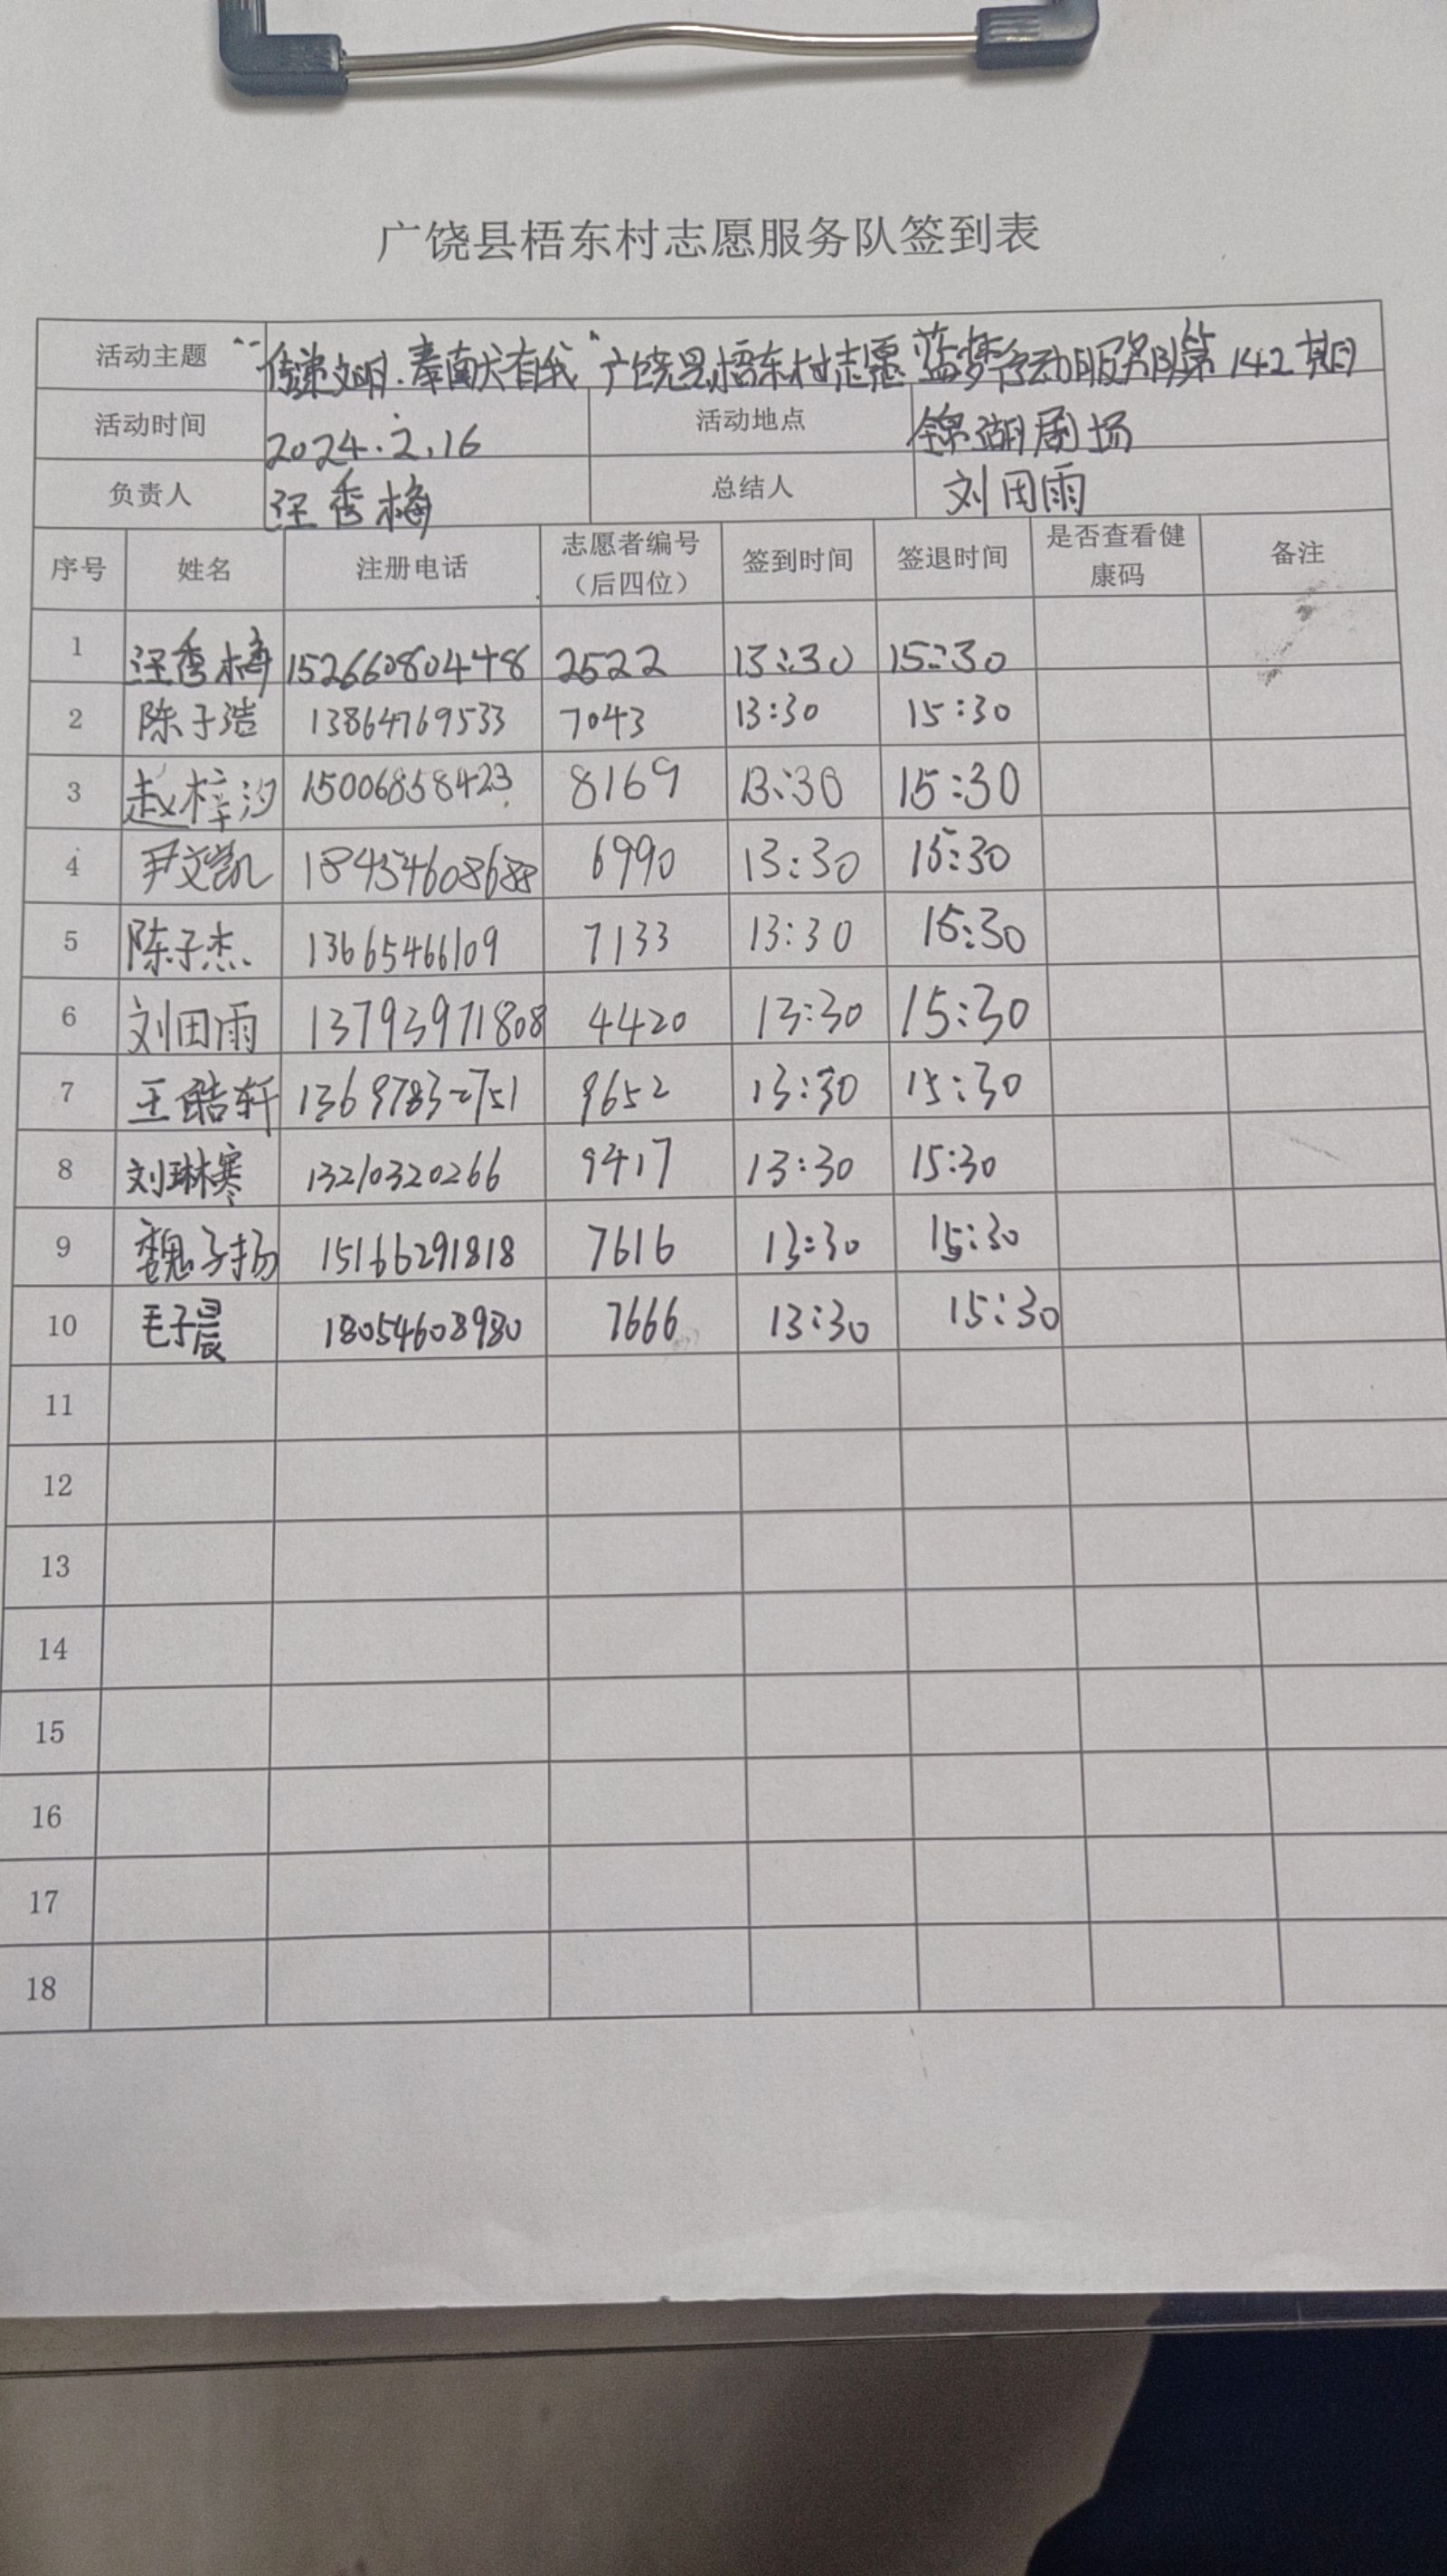 广饶县梧东村志愿服务队签到表
活动主题 “传递文明·奉献有我”广饶县梧东村志愿蓝梦行动服务队第142期
活动时间 2024.2.16 活动地点 锦湖剧场
负责人 汪秀梅 总结人 刘田雨
序号 姓名 注册电话 志愿者编号（后四位） 签到时间 签退时间 是否查看健康码 备注
1 汪秀梅 15266080448 2522 13:30 15:30
2 陈子浩 13864769533 7043 13:30 15:30
3 赵梓汐 15006858423 8169 13:30 15:30
4 尹文凯 18454608688 6990 13:30 15:30
5 陈子杰 13665466109 7133 13:30 15:30
6 刘田雨 13793971808 4420 13:30 15:30
7 王皓轩 13697832751 9652 13:30 15:30
8 刘琳寒 13210320266 9417 13:30 15:30
9 魏子扬 15166291818 7616 13:30 15:30
10 毛子晨 18054608980 7666 13:30 15:30
11
12
13
14
15
16
17
18